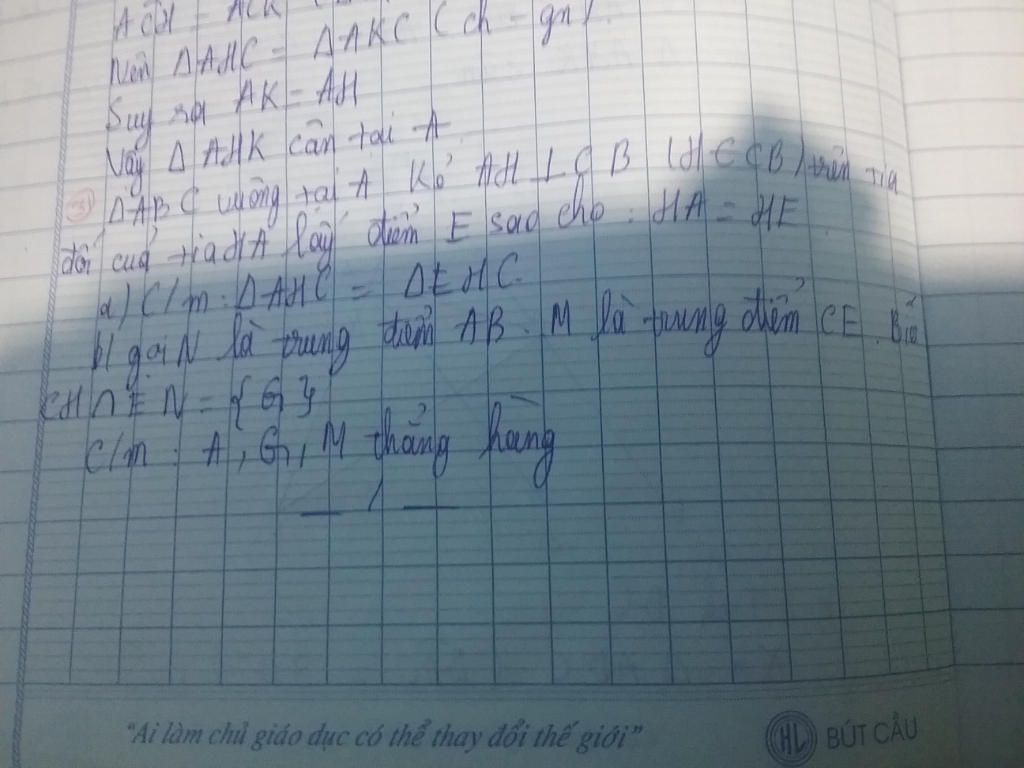 ACH = ACK (
Nên ΔAHC = ΔAKC (ch - gn).
Suy ra AK = AH
Vậy Δ AHK cân tại A
(3) ΔABC vuông tại A Kẻ AH ⊥ CB (H ∈ CB) trên tia
đối cuả tia HA lấy điểm E sao cho : HA = HE
a) C/m : ΔAHC = ΔEHC.
b) gọi N là trung điểm AB. M là trung điểm CE. Biết
CH ∩ EN = {G}
C/m : A, G, M thẳng hàng
"Ai làm chủ giáo dục có thể thay đổi thế giới"
HL BÚT CẦU